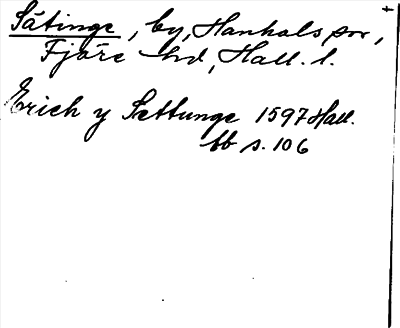 Sätinge, by, Hanhals sn,
Fjäre hd, Hall. l.
Erich y Settunge 1597 Hall.
tb s. 106